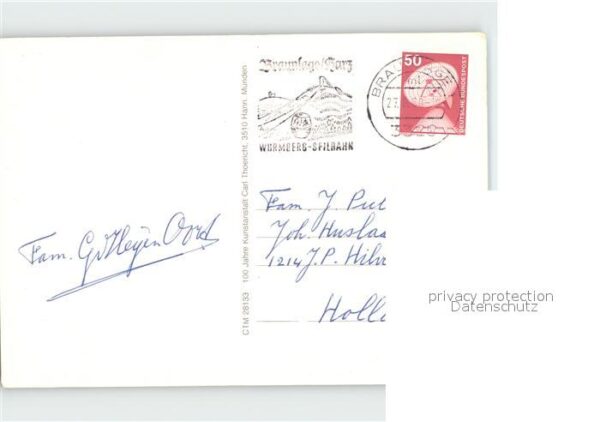 Braunlage/Harz
WURMBERG-SEILBAHN
BRAUNLAGE
50
DEUTSCHE BUNDESPOST
CTM 28193 100 Jahre Kunstanstalt Carl Thoericht, 3510 Hann. Münden
Fam. J.
Joh. Huslaa
1214 J.P. Hilv
Holl
Fam. G. v
privacy protection
Datenschutz